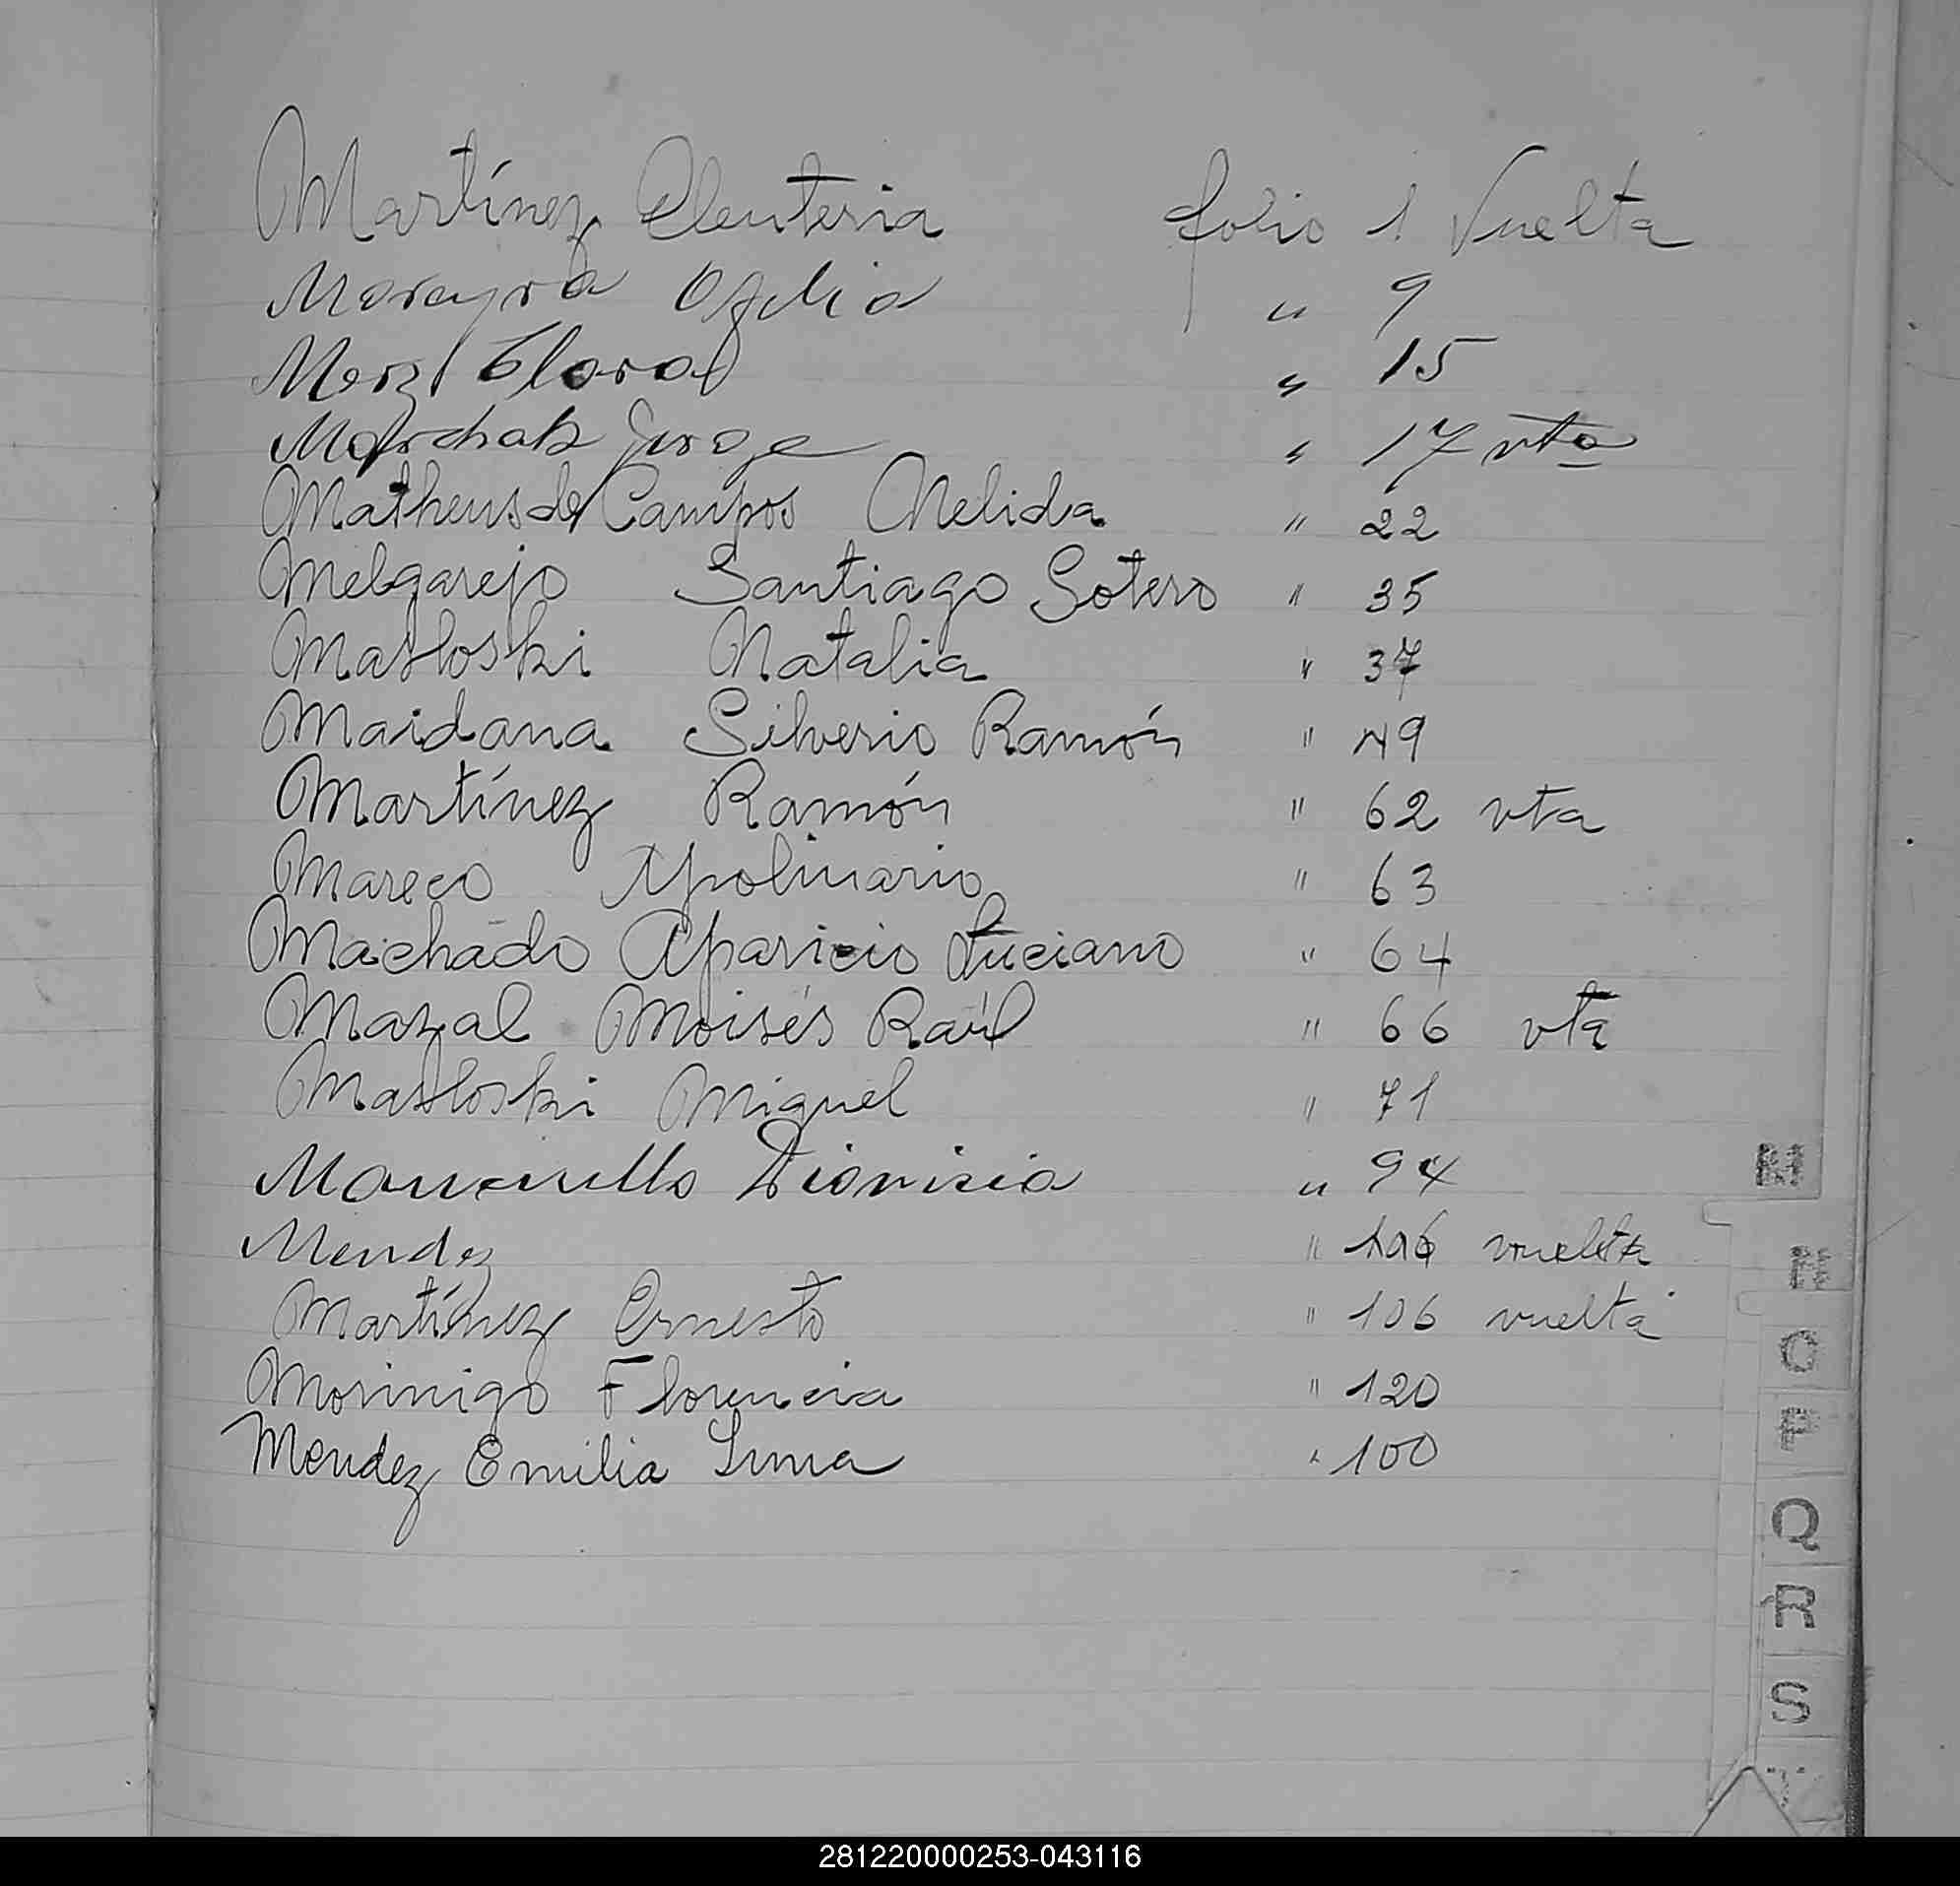 Martínez Eleuteria folio 1 Vuelta
Moreyra Ofelia " 9
Merz Clara " 15
Jorge " 17 vta
Matheus de Campos Nelida " 22
Melgarejo Santiago Sotero " 35
Masloski Natalia " 37
Maidana Silverio Ramón " 49
Martínez Ramón " 62 vta
Mareco Apolinario " 63
Machado Aparicio Luciano " 64
Mazal Moisés Raúl " 66 vta
Masloski Miguel " 71
Dionisia " 94
Mendez " 106 vuelta
Martínez Ernesto " 106 vuelta
Morinigo Florencia " 120
Mendez Emilia Luna " 100
M
N
O
P
Q
R
S
T
281220000253-043116